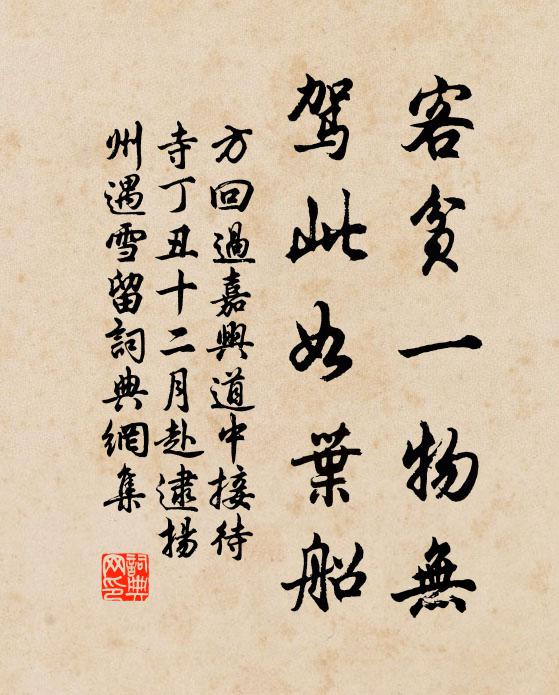 客貧一物無
駕此如葉船
方回過嘉興道中接待
寺丁丑十二月赴逮揚
州遇雪留詞典網集
詞典網印